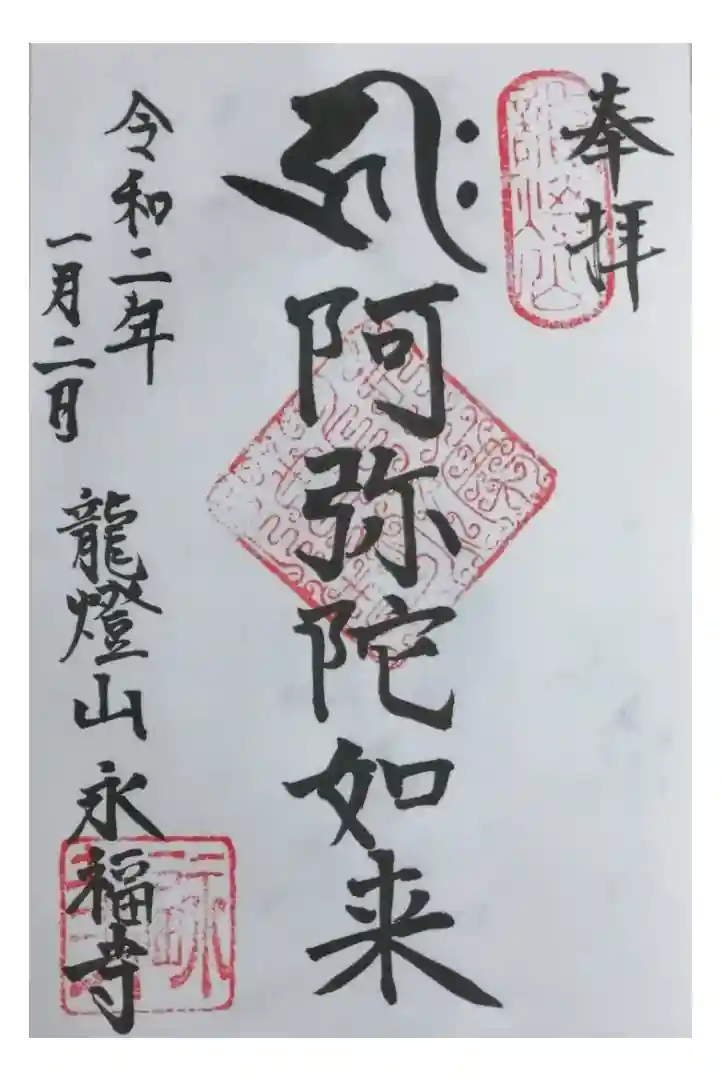 奉拝
𑖮𑖿𑖨𑖱𑖾
阿弥陀如来
令和二年
一月二日
龍燈山永福寺